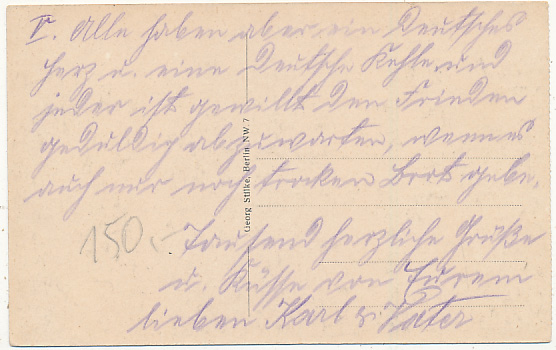 V. Alle haben aber ein Deutsches
Herz u. eine Deutsche Kehle und
jeder ist gewillt den Frieden
geduldig abzuwarten, wenn es
auch nur noch trocken Brot gebe.
Tausend herzliche Grüße
u. Küsse von Eurem
lieben Karl & Vater
150.-
Georg Stilke, Berlin NW. 7